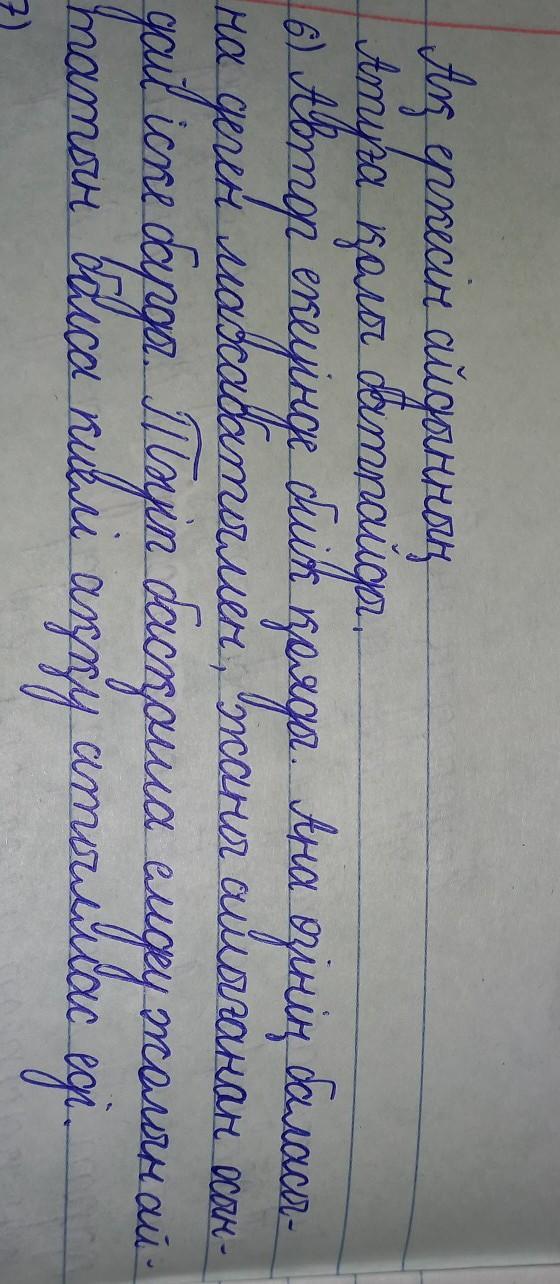 Ақ еркесін айдынның
Атуға қолы батпайды.
6) Автор екеуінде биік қояды. Ана өзінің баласы-
на деген махаббатымен, жаны ашығанан осын-
дай іске барды. Тәуіп басқаша емдеу жолын ай-
татын болса киелі аққу атылмас еді.
7)